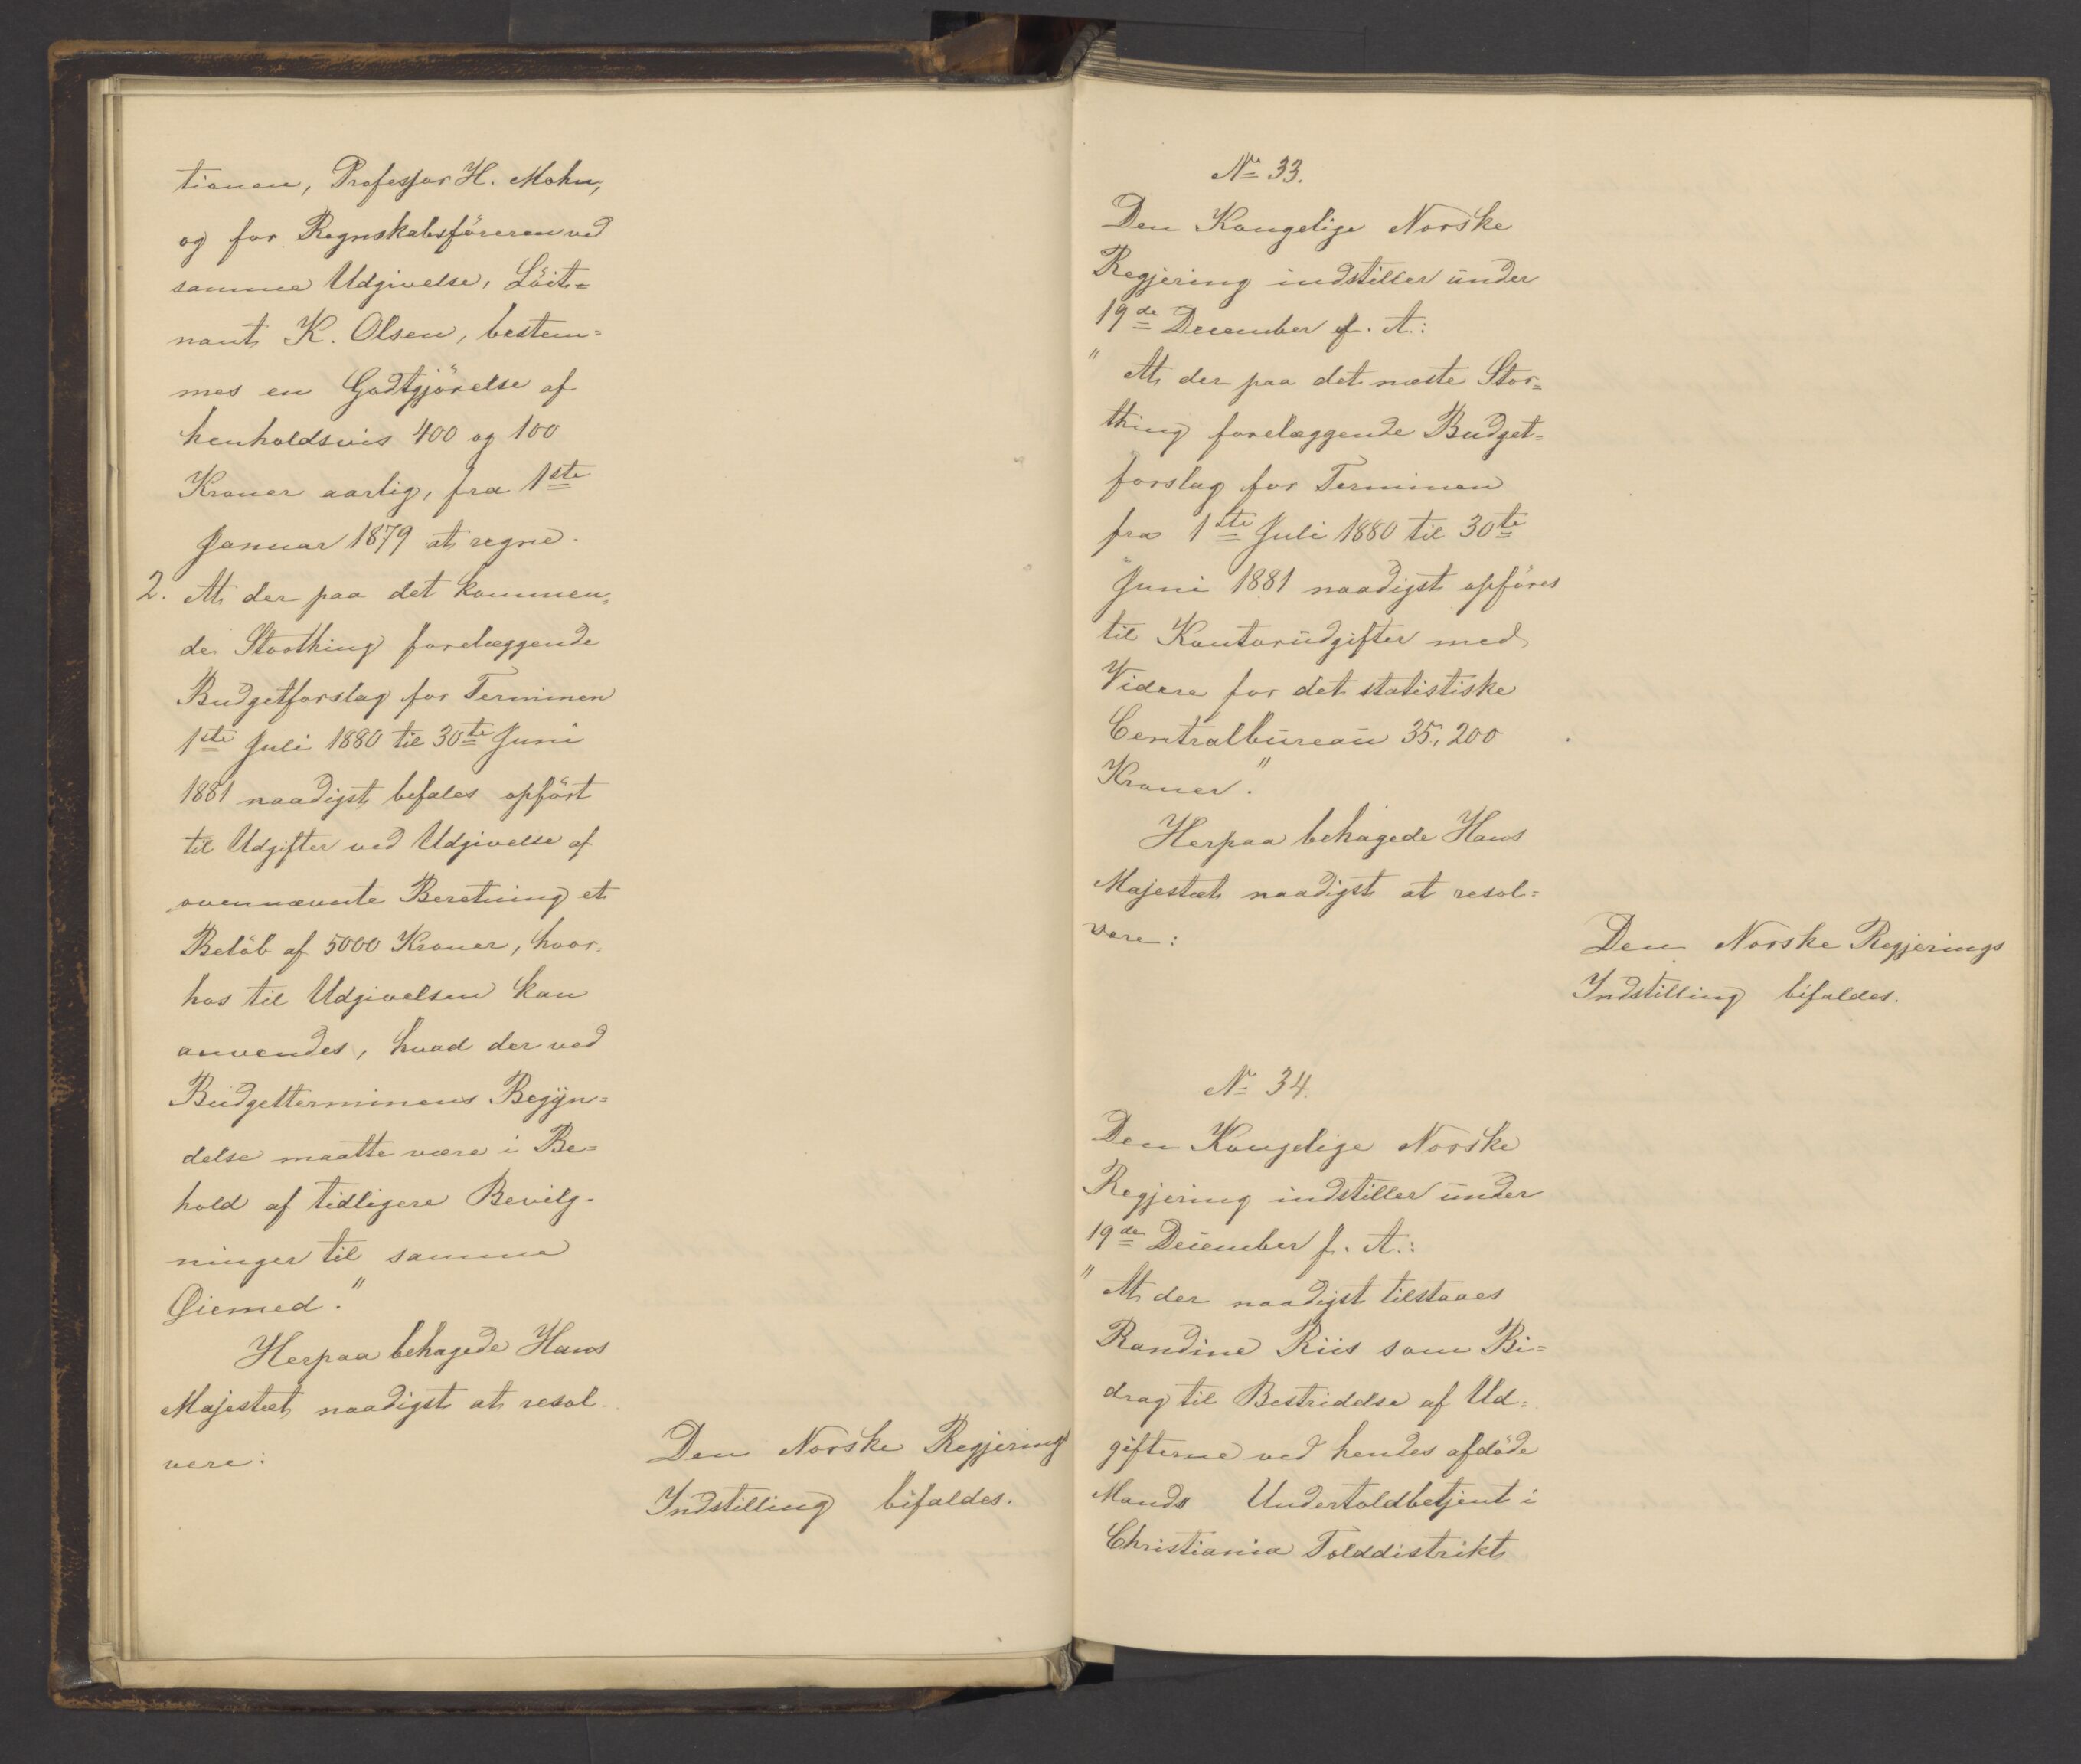 tionen, Professor H. Mohn,
og for Regnskabsföreren ved
samme Udgivelse, Löit=
nant K. Olsen, bestem=
mes en Godtgjörelse af
henholdsvis 400 og 100
Kroner aarlig, fra 1ste
Januar 1879 at regne.
2. At der paa det kommen,
de Storthing forelæggende
Budgetforslag for Terminen
1ste Juli 1880 til 30te Juni
1881 naadigst befales opfört
til Udgifter ved Udgivelse af
ovennævnte Beretning et
Belöb af 5000 Kroner, hvor,
hos til Udgivelsen kan
anvendes, hvad der ved
Budgetterminens Begyn=
delse maatte være i Be=
hold af tidligere Bevilg-
ninger til samme
Øiemed."
Herpaa behagede Hans
Majestæt naadigst at resol-
vere:
Den Norske Regjerings
Indstilling bifaldes.
No 33.
Den Kongelige Norske
Regjering indstiller under
19de December f. A.:
"At der paa det næste Stor=
thing forelæggende Budget=
forslag for Terminen
fra 1ste Juli 1880 til 30te
Juni 1881 naadigst opföres
til Kontorudgifter med
Videre for det statistiske
Centralbureau 35,200
Kroner".
Herpaa behagede Hans
Majestæt naadigst at resol=
vere:
Den Norske Regjerings
Indstilling bifaldes.
No 34.
Den Kongelige Norske
Regjering indstiller under
19de December f. A.:
"At der naadigst tilstaaes
Randine Riis som Bi=
drag til Bestridelse af Ud=
gifterne ved hendes afdöde
Mands Undertoldbetjent i
Christiania Tolddistrikt